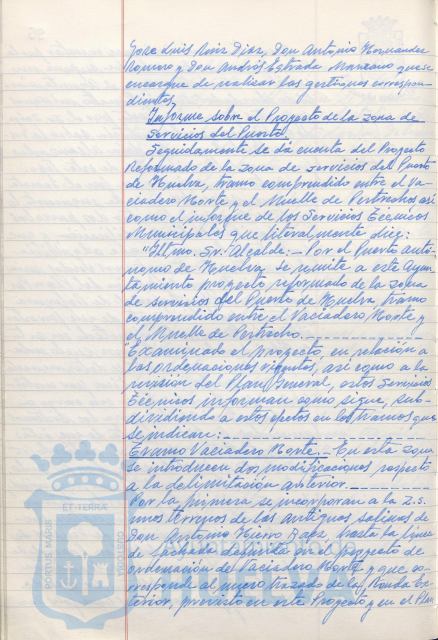 José Luis Ruiz Díaz, Don Antonio Hernandez
Romero y Don Andrés Estrada Manzano que se
encargue de realizar las gestiones correspon-
dientes.
Informe sobre el Proyecto de la zona de
Servicios del Puerto.
Seguidamente se dió cuenta del Proyecto
Reformado de la zona de servicios del Puerto
de Huelva, tramo comprendido entre el Va-
ciadero Norte y el Muelle de Pertrechos así
como el informe de los Servicios Técnicos
Municipales que literalmente dice:
"Iltmo. Sr. Alcalde:- Por el Puerto autó-
nomo de Huelva se remite a este Ayun-
tamiento proyecto reformado de la zona
de servicios del Puerto de Huelva tramo
comprendido entre el Vaciadero Norte y
el Muelle de Pertrecho.
"Examinado el proyecto, en relación a
las ordenaciones vigentes, así como a la
revisión del Plan General, estos Servicios
Técnicos informan como sigue, sub-
dividiendo a estos efectos en los tramos que
se indican:
Tramo Vaciadero Norte.- En esta zona
se introducen dos modificaciones respecto
a la delimitación anterior.
Por la primera se incorporan a la Z.S.
unos terrenos de las antiguas salinas de
Don Antonio Hierro, hasta la línea
de fachada definida en el proyecto de
ordenación de Vaciadero Norte y que co-
rresponde al nuevo trazado de la Ronda Ex-
terior, previsto en este Proyecto y en el Plan
PORTUS MARIS
ET TERRÆ
CUSTODIA